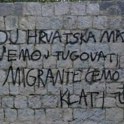 OJ HRVATSKA MA
NEMOJ TUGOVATI
MIGRANTE ĆEMO
KLATI